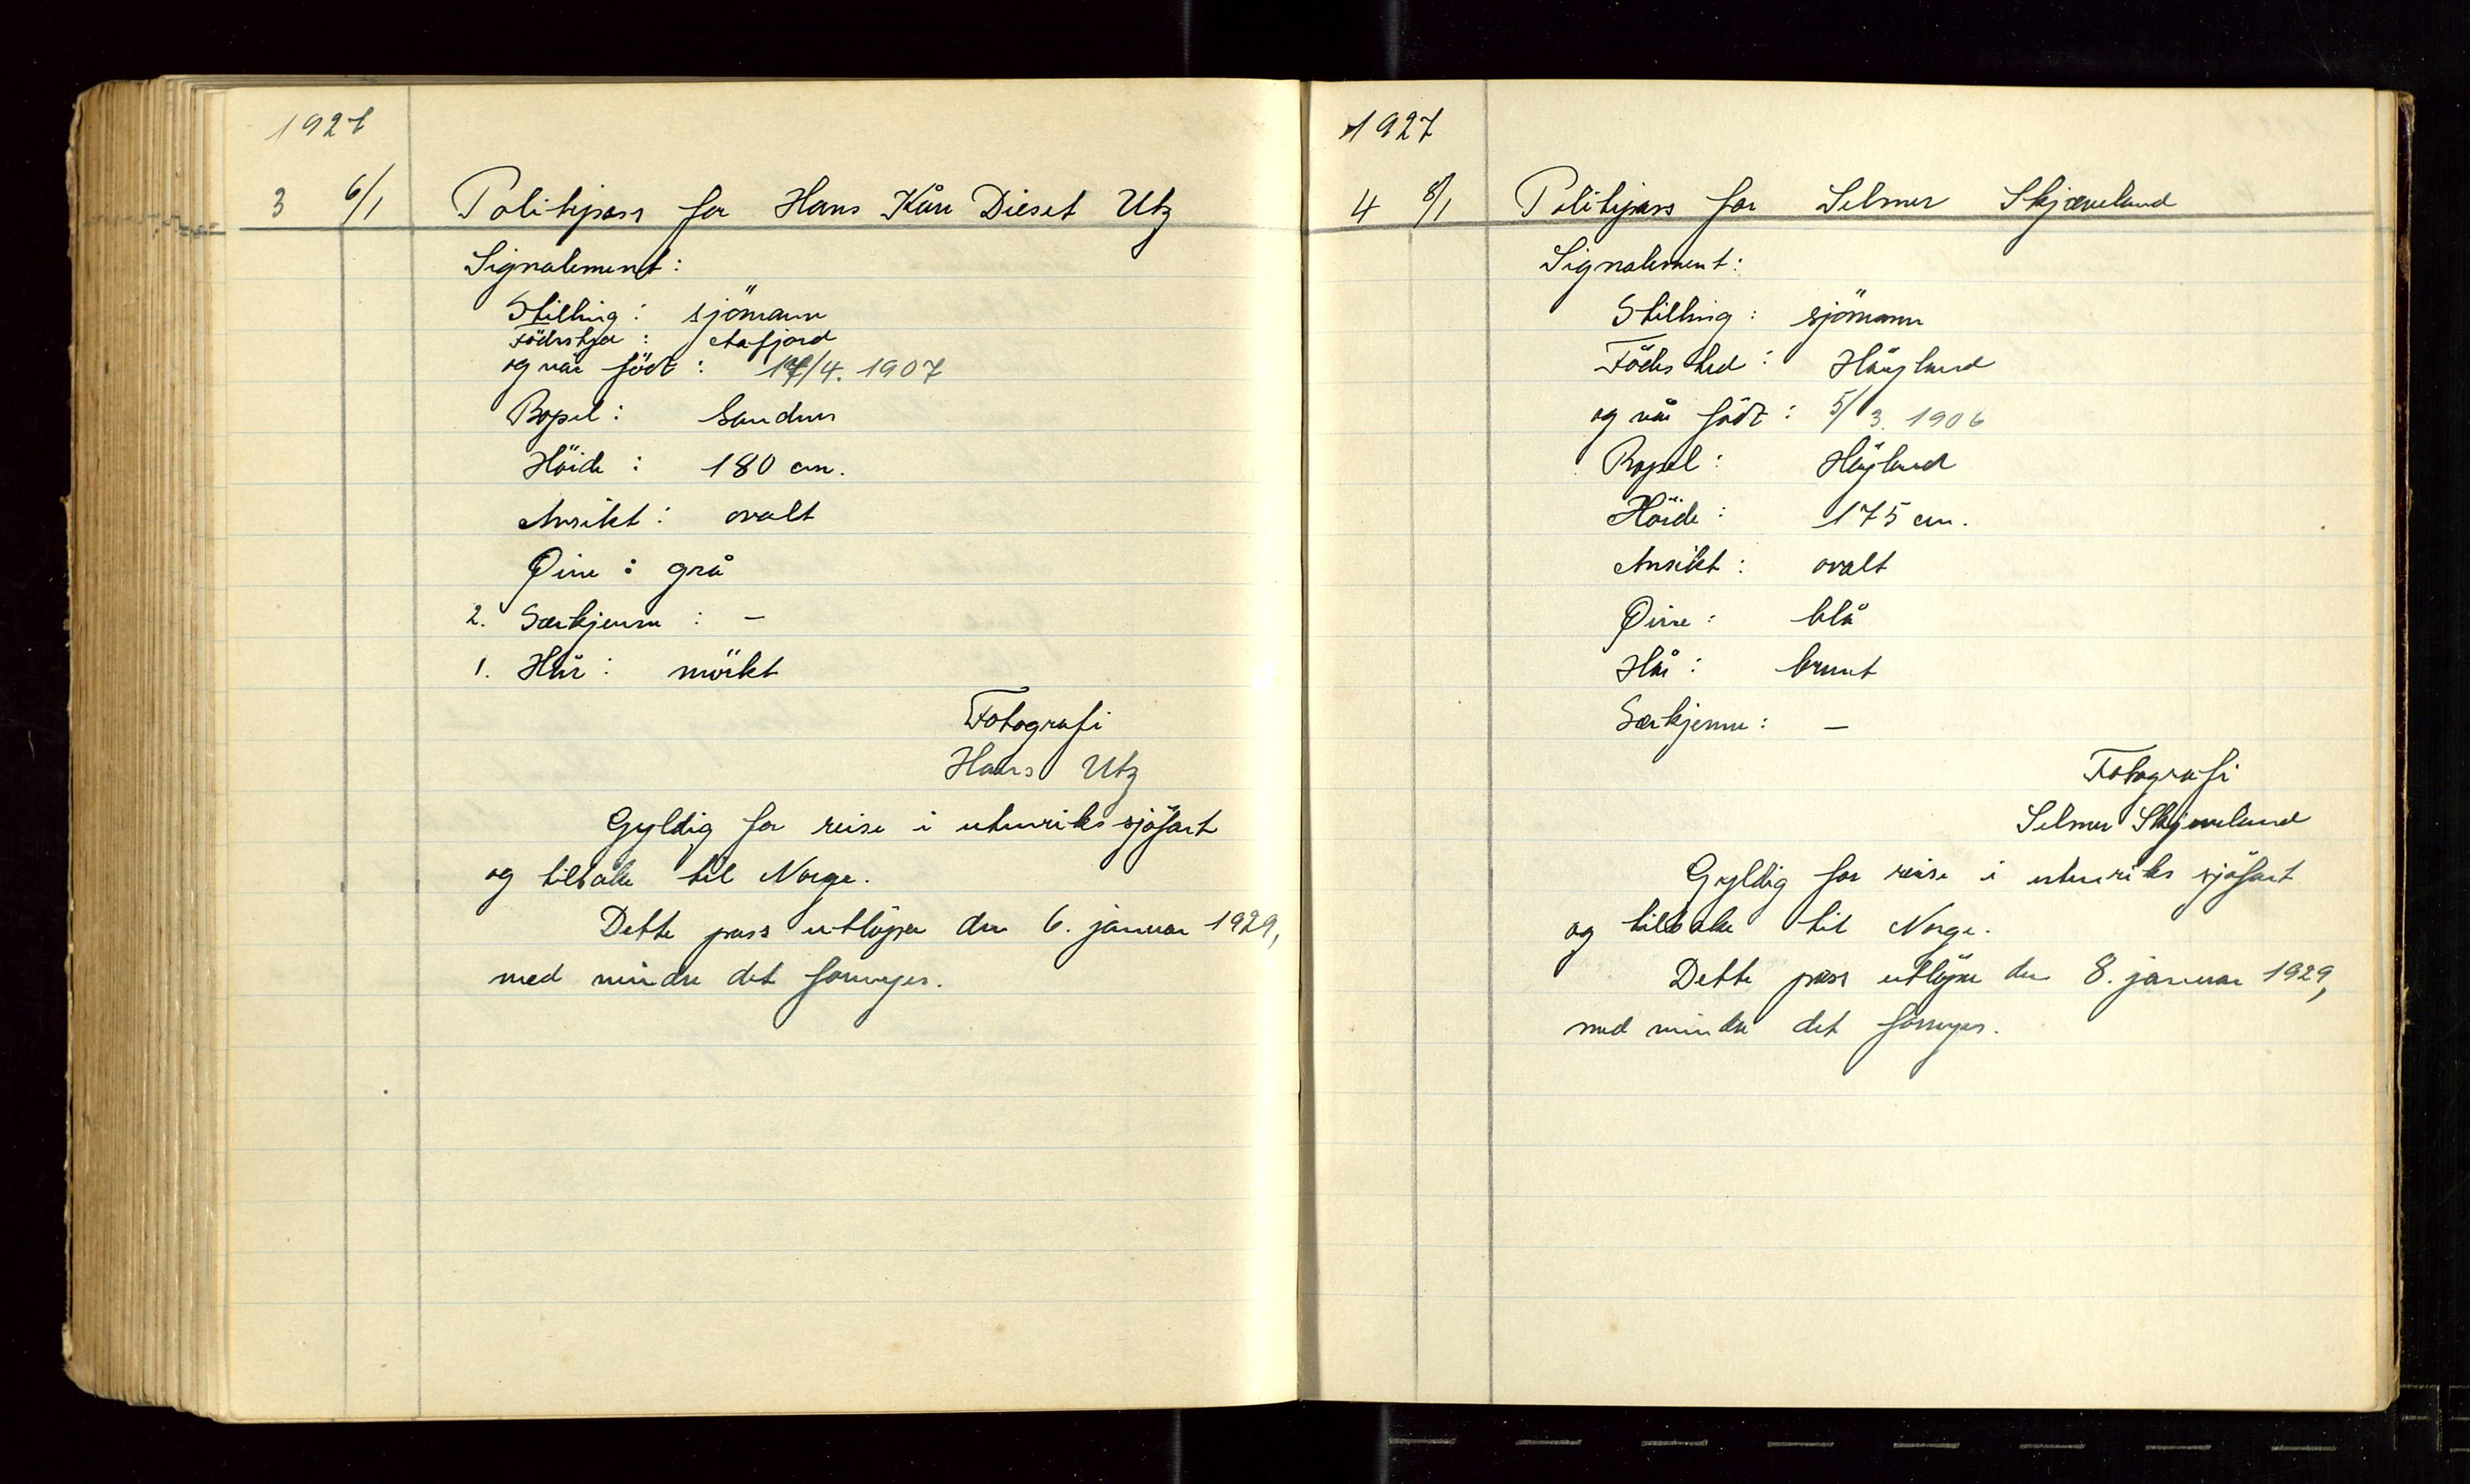 1927
3 6/1 Politipass for Hans Kåre Dieset Utz
Signalement:
Stilling: sjömann
Födested: Aafjord
og når födt: 14/4. 1907
Bopel: Sandnes
Höide: 180 cm.
Ansikt: ovalt
Øine: grå
2. Særkjenne: -
1. Hår: mörkt
Fotografi
Hans Utz
Gyldig for reise i utenriks sjöfart
og tilbake til Norge.
Dette pass utlöper den 6. januar 1929,
med mindre det fornyes.
1927
4 8/1 Politipass for Selmer Skjæveland
Signalement:
Stilling: sjömann
Födested: Höyland
og når födt: 5/3. 1906
Bopel: Höyland
Höide: 175 cm.
Ansikt: ovalt
Øine: blå
Hår: brunt
Særkjenne: -
Fotografi
Selmer Skjæveland
Gyldig for reise i utenriks sjöfart
og tilbake til Norge.
Dette pass utlöper den 8. januar 1929,
med mindre det fornyes.